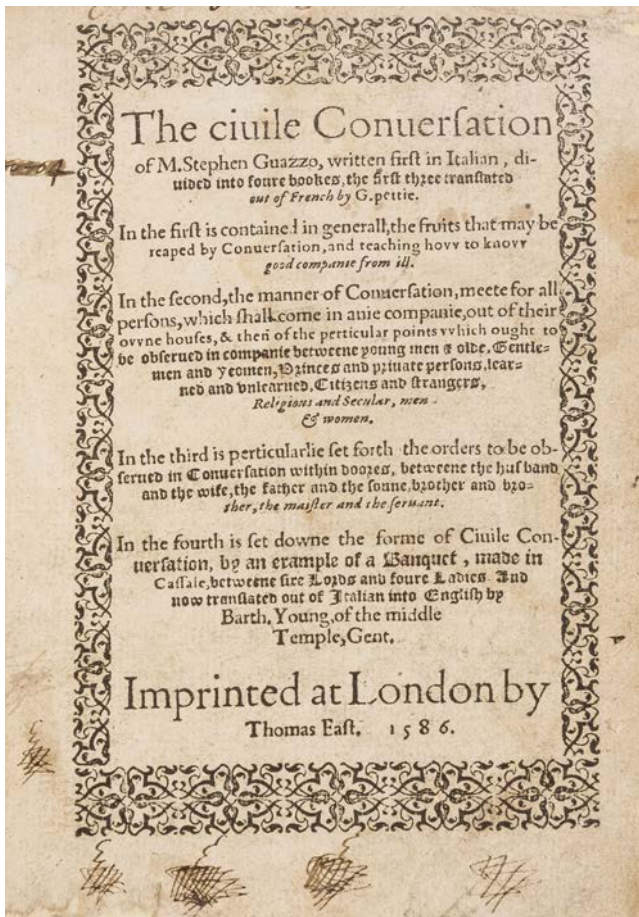 The ciuile Conuerſation
of M.Stephen Guazzo, written firſt in Italian, di-
uided into foure bookes, the firſt three tranſlated
out of French by G.pettie.
In the firſt is contained in generall, the fruits that may be
reaped by Conuerſation, and teaching hovv to knovv
good companie from ill.
In the ſecond, the manner of Conuerſation, meete for all
perſons, which ſhall come in anie companie, out of their
ovvne houſes, & then of the perticular points vvhich ought to
be obſerued in companie betweene young men & olde, Gentle-
men and Yeomen, Princes and priuate perſons, lear-
ned and vnlearned, Citizens and ſtrangers,
Religious and Secular, men
& women.
In the third is perticularlie ſet forth the orders to be ob-
ſerued in Conuerſation within doores, betweene the huſband
and the wife, the father and the ſonne, brother and bro-
ther, the maiſter and the ſeruant.
In the fourth is ſet downe the forme of Ciuile Con-
uerſation, by an example of a Banquet, made in
Caſſale, betweene ſixe Lords and foure Ladies. And
now tranſlated out of Italian into Engliſh by
Barth. Young, of the middle
Temple, Gent.
Imprinted at London by
Thomas Eaſt. 1586.